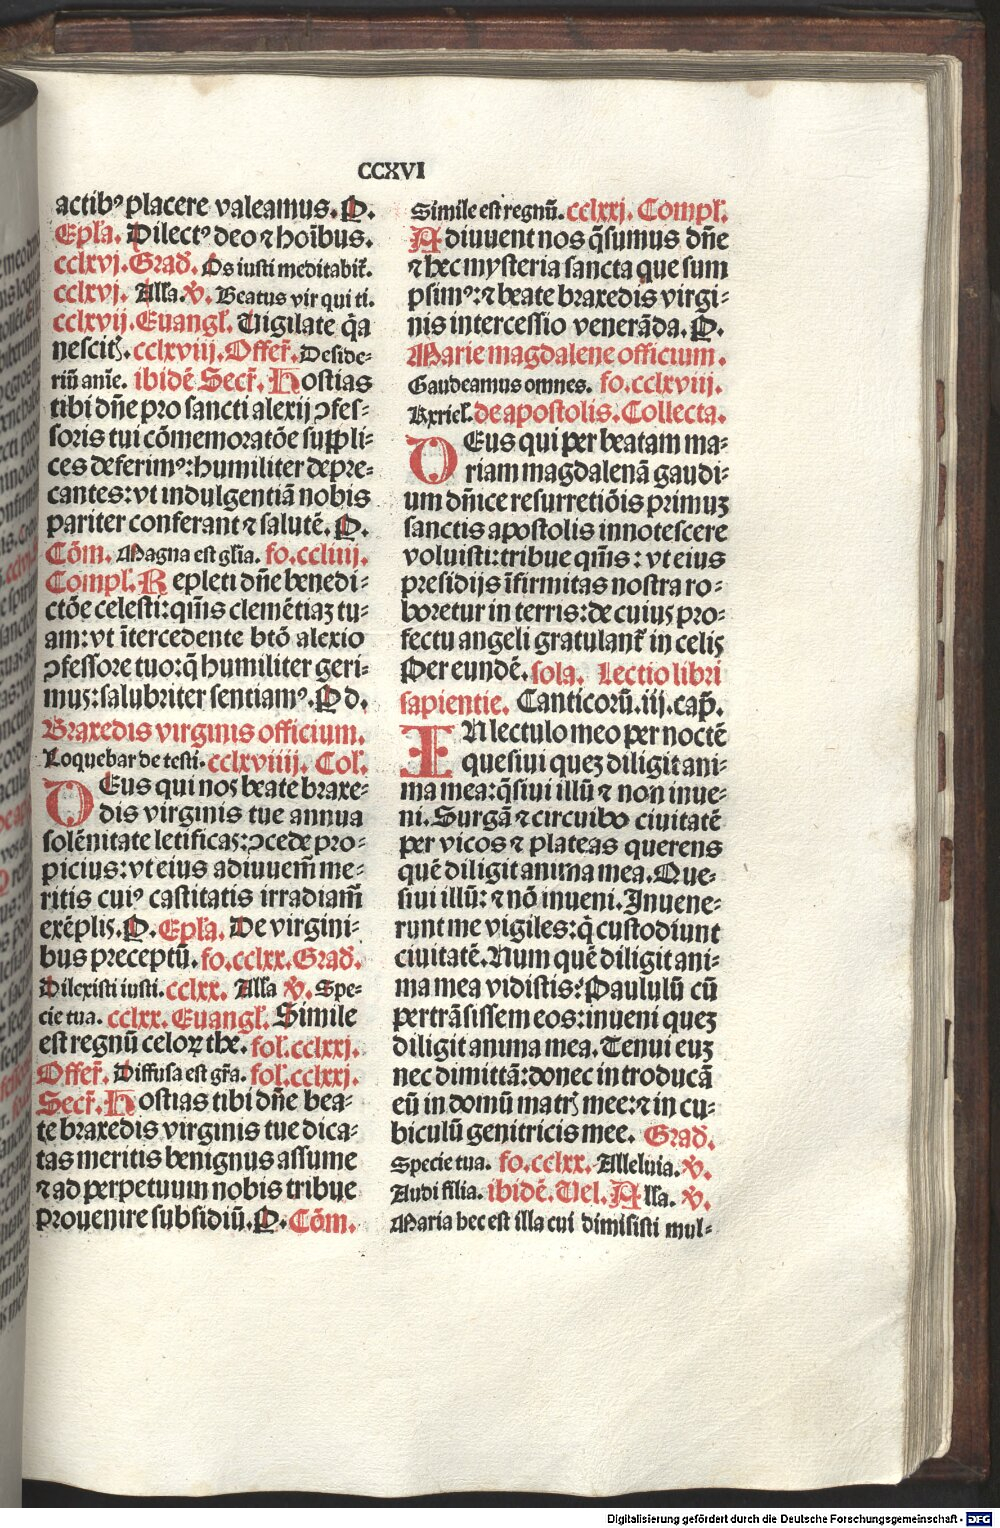 CCXVI
actibꝰ placere valeamus. P.
Epl'a. Dilectꝰ deo ⁊ hoı̄bus.
cclxvj. Grad̄. Os iusti meditabit̄.
cclxvj. All'a. ℣. Beatus vir qui ti.
cclxvij. Euangl̄. Uigilate q̄a
nescitꝭ. cclxviij. Offer̄. Deside⸗
riū anīe. ibidē Secr̄. Hostias
tibi dn̄e pro sancti alexij ꝯfes⸗
soris tui cōmemoratōe suppli⸗
ces deferimꝰ: humiliter depre⸗
cantes: vt indulgentiā nobis
pariter conferant ⁊ salutē. P.
Cōm. Magna est gl'ia. fo. ccliiij.
Compl'. Repleti dn̄e benedi⸗
ctōe celesti: qm̄s clemētiaȝ tu⸗
am: vt ītercedente btō alexio
ꝯfessore tuo: q̄ humiliter geri⸗
mus: salubriter sentiamꝰ. P d.
Braxedis virginis officium.
Loquebar de testi. cclxviiij. Col'.
DEus qui nos beate braxe⸗
dis virginis tue annua
solēnitate letificas: ꝯcede pro⸗
picius: vt eius adiuuem̄ me⸗
ritis cuiꝰ castitatis irradiam̄
exēplis. P. Epl'a. De virgini⸗
bus preceptū. fo. cclxx. Grad̄.
Dilexisti iusti. cclxx. All'a ℣. Spe⸗
cie tua. cclxx. Euangl'. Simile
est regnū celoꝝ the. fol'. cclxxj.
Offer̄. Diffusa est gr̄a. fol'. cclxxj.
Secr̄. Hostias tibi dn̄e bea⸗
te braxedis virginis tue dica⸗
tas meritis benignus assume
⁊ ad perpetuum nobis tribue
prouenire subsidiū. P. Cōm.
Simile est regnū. cclxxj. Compl'.
Adiuuent nos q̄sumus dn̄e
⁊ hec mysteria sancta que sum
psimꝰ: ⁊ beate braxedis virgi⸗
nis intercessio venerāda. P.
Marie magdalene officium.
Gaudeamus omnes. fo. cclxviij.
Kyriel'. de apostolis. Collecta.
DEus qui per beatam ma⸗
riam magdalenā gaudi⸗
um dn̄ice resurretiōis primuȝ
sanctis apostolis innotescere
voluisti: tribue qm̄s: vt eius
presidijs īfirmitas nostra ro⸗
boretur in terris: de cuius pro⸗
fectu angeli gratulant̄ in celis
Per eundē. sola. Lectio libri
sapientie. Canticorū. iij. cap̄.
IN lectulo meo per noctē
quesiui queȝ diligit ani⸗
ma mea: q̄siui illū ⁊ non inue⸗
ni. Surgā ⁊ circuibo ciuitatē
per vicos ⁊ plateas querens
quē diligit anima mea. Que⸗
siui illū: ⁊ nō inueni. Inuene⸗
runt me vigiles: q̄ custodiunt
ciuitatē. Num quē diligit ani⸗
ma mea vidistis? Paululū cū
pertrāsissem eos: inueni queȝ
diligit anima mea. Tenui euȝ
nec dimittā: donec introducā
eū in domū matrꝭ mee: ⁊ in cu⸗
biculū genitricis mee. Grad̄.
Specie tua. fo. cclxx. Alleluia. ℣.
Audi filia. ibidē. Uel. All'a. ℣.
Maria hec est illa cui dimisisti mul⸗
Digitalisierung gefördert durch die Deutsche Forschungsgemeinschaft - DFG